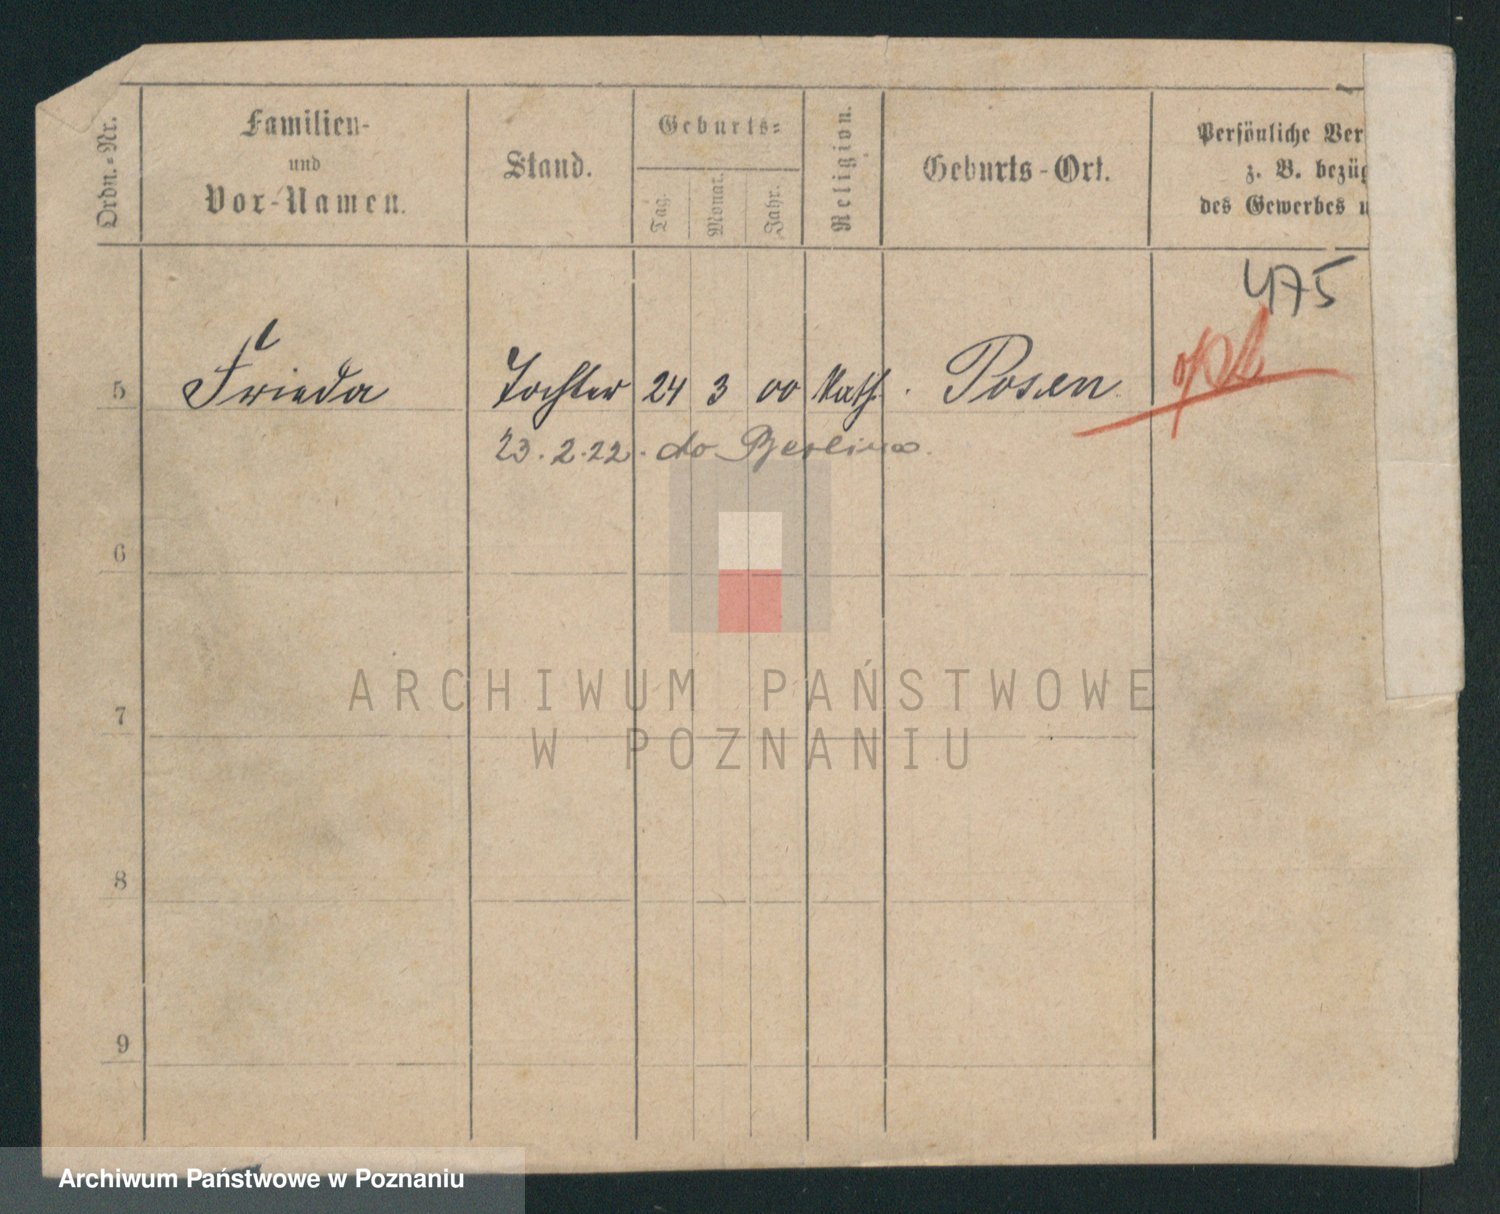 Ordn.-Nr.
Familien-
und
Vor-Namen.
Stand.
Geburts-
Tag.
Monat.
Jahr.
Religion.
Geburts-Ort.
Persönliche Ver
z. B. bezüg
des Gewerbes u
475
5 Frieda Tochter 24 3 00 Kath. Posen
23.2.22. do Berlina.
6
7
8
9
ARCHIWUM PAŃSTWOWE
W POZNANIU
Archiwum Państwowe w Poznaniu